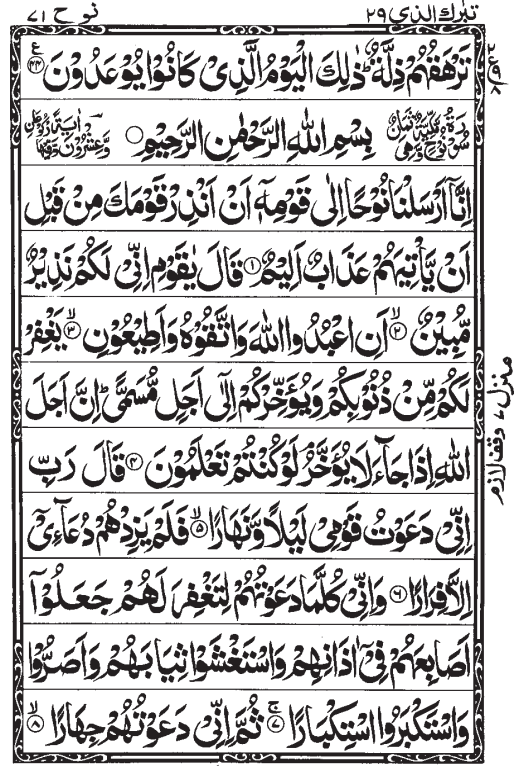 تبرك الذي ٢٩
نوح ٧١
تَرْهَقُهُمْ ذِلَّةٌ ؕ ذٰلِكَ الْیَوْمُ الَّذِیْ كَانُوْا یُوْعَدُوْنَ ۝۴۴ ع
سُوْرَةُ نُوْحٍ مَّكِّیَّةٌ
بِسْمِ اللّٰهِ الرَّحْمٰنِ الرَّحِیْمِ ۝
اِنَّاۤ اَرْسَلْنَا نُوْحًا اِلٰی قَوْمِهٖۤ اَنْ اَنْذِرْ قَوْمَكَ مِنْ قَبْلِ
اَنْ یَّاْتِیَهُمْ عَذَابٌ اَلِیْمٌ ۝۱ قَالَ یٰقَوْمِ اِنِّیْ لَكُمْ نَذِیْرٌ
مُّبِیْنٌ ۝۲ۙ اَنِ اعْبُدُوا اللّٰهَ وَاتَّقُوْهُ وَاَطِیْعُوْنِ ۝۳ۙ یَغْفِرْ
لَكُمْ مِّنْ ذُنُوْبِكُمْ وَیُؤَخِّرْكُمْ اِلٰۤی اَجَلٍ مُّسَمًّی ؕ اِنَّ اَجَلَ
اللّٰهِ اِذَا جَآءَ لَا یُؤَخَّرُ ۘ لَوْ كُنْتُمْ تَعْلَمُوْنَ ۝۴ قَالَ رَبِّ
اِنِّیْ دَعَوْتُ قَوْمِیْ لَیْلًا وَّنَهَارًا ۝۵ۙ فَلَمْ یَزِدْهُمْ دُعَآءِیْۤ
اِلَّا فِرَارًا ۝۶ وَاِنِّیْ كُلَّمَا دَعَوْتُهُمْ لِتَغْفِرَ لَهُمْ جَعَلُوْۤا
اَصَابِعَهُمْ فِیْۤ اٰذَانِهِمْ وَاسْتَغْشَوْا ثِیَابَهُمْ وَاَصَرُّوْا
وَاسْتَكْبَرُوا اسْتِكْبَارًا ۝۷ۚ ثُمَّ اِنِّیْ دَعَوْتُهُمْ جِهَارًا ۝۸ۙ
منزل ٧
وقف لازم